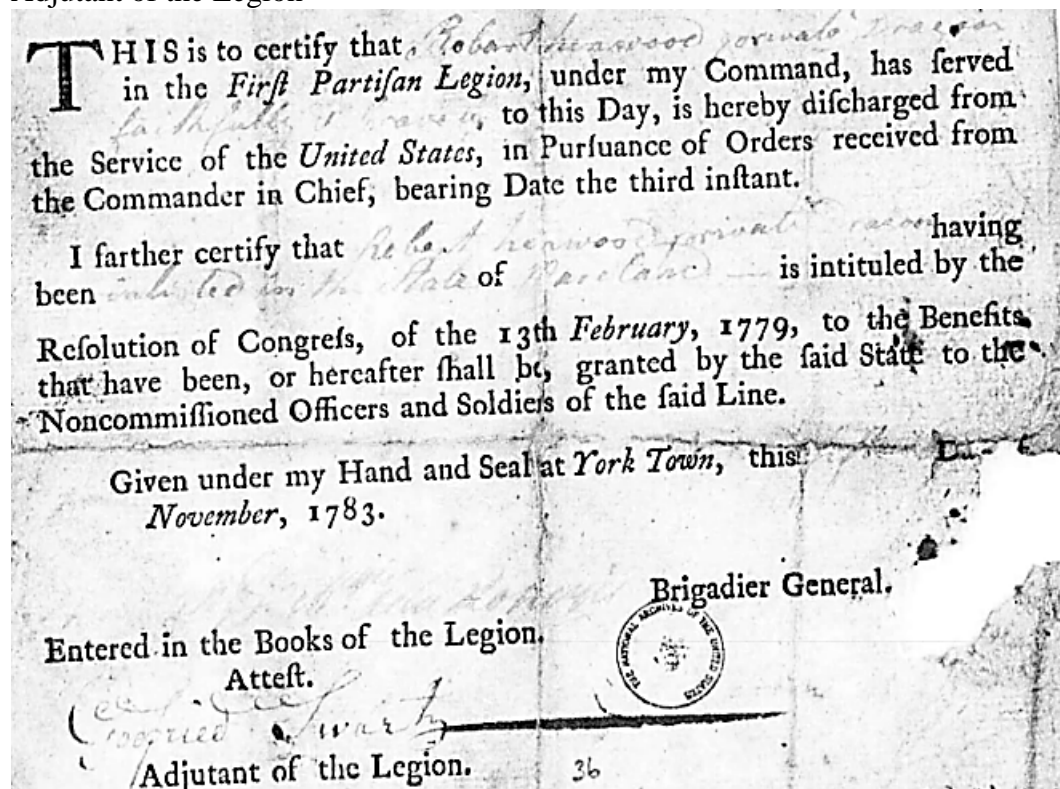 Adjutant of the Legion
THIS is to certify that, Robart henwood privat Dragoon
in the Firſt Partiſan Legion, under my Command, has ſerved
faithfully & to this Day, is hereby diſcharged from
the Service of the United States, in Purſuance of Orders received from
the Commander in Chief, bearing Date the third inſtant.
I farther certify that Robert henwood privat having
been inlisted in the State of Mareland is intituled by the
Reſolution of Congreſs, of the 13th February, 1779, to the Benefits
that have been, or hereafter ſhall be, granted by the ſaid State to the
Noncommiſſioned Officers and Soldiers of the ſaid Line.
Given under my Hand and Seal at York Town, this
November, 1783.
Brigadier General.
THE NATIONAL ARCHIVES OF THE UNITED STATES
Entered in the Books of the Legion.
Atteſt.
Swartz
Adjutant of the Legion. 36